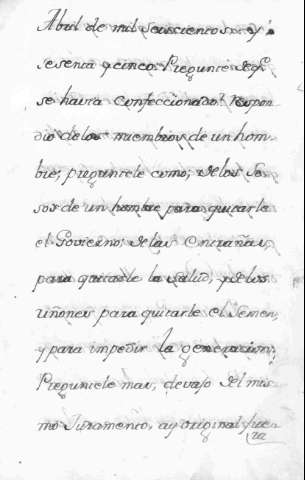 Abril de mil seiscientos y
sesenta y cinco. Pregunté de q.e
se havia confeccionado? Respon-
dio de los miembros de un hom-
bre; preguntele como; de los Se-
sos de un hombre para quitarle
el Govierno; de las Entrañas,
para quitarle la salud, y de los
riñones para quitarle el Semen,
y para impedir la generacion,
Preguntele mas, devajo del mis-
mo Juramento, ay original fuera